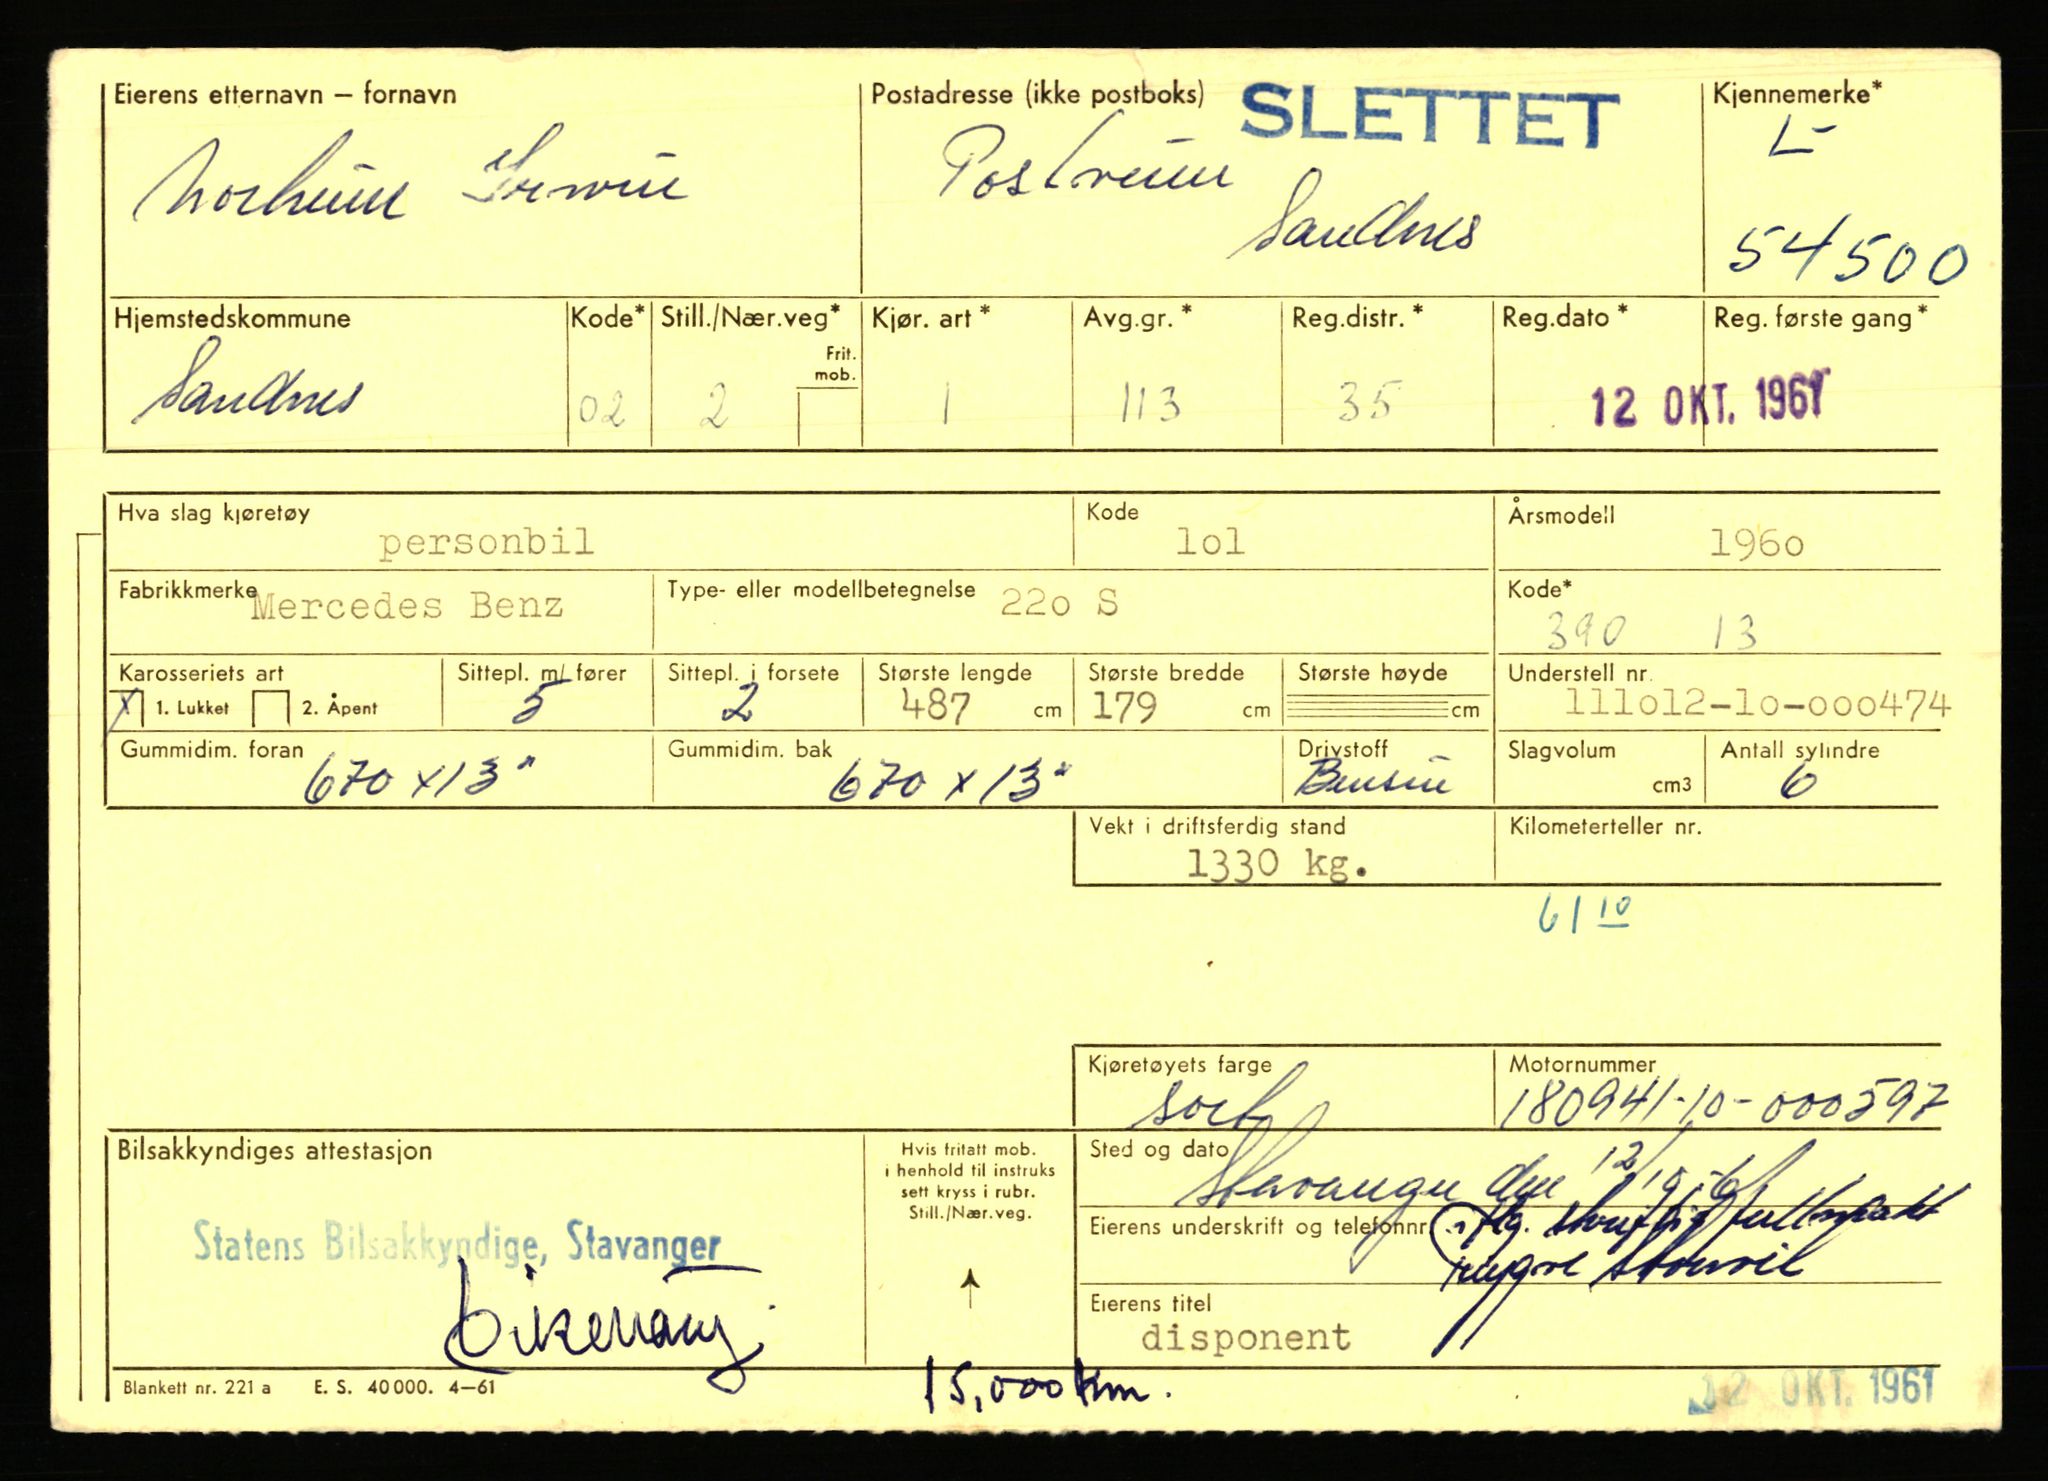 Eierens etternavn – fornavn
Postadresse (ikke postboks)
SLETTET
Kjennemerke*
L-
Norheim
Postveien
Sandnes
54500
Hjemstedskommune
Kode*
Still./Nær.veg*
Kjør. art *
Avg.gr. *
Reg.distr. *
Reg.dato *
Reg. første gang *
Frit. mob.
Sandnes
02
2
1
113
35
12 OKT. 1961
Hva slag kjøretøy
personbil
Kode
1o1
Årsmodell
196o
Fabrikkmerke
Mercedes Benz
Type- eller modellbetegnelse
22o S
Kode*
390 13
Karosseriets art
X 1. Lukket
2. Åpent
Sittepl. m/ fører
5
Sittepl. i forsete
2
Største lengde
487 cm
Største bredde
179 cm
Største høyde
cm
Understell nr.
111o12-1o-ooo474
Gummidim. foran
670 x 13"
Gummidim. bak
670 x 13"
Drivstoff
Bensin
Slagvolum
cm3
Antall sylindre
6
Vekt i driftsferdig stand
1330 kg.
Kilometerteller nr.
61 10
Kjøretøyets farge
sort
Motornummer
180941-10-000597
Bilsakkyndiges attestasjon
Hvis fritatt mob.
i henhold til instruks
sett kryss i rubr.
Still./Nær.veg.
Sted og dato
Stavanger den 12/10-61
Statens Bilsakkyndige, Stavanger
Eierens underskrift og telefonnr.
iflg. skriftlig fullmakt
Eierens titel
disponent
Blankett nr. 221 a E. S. 40 000. 4–61
15,000 km.
12 OKT. 1961